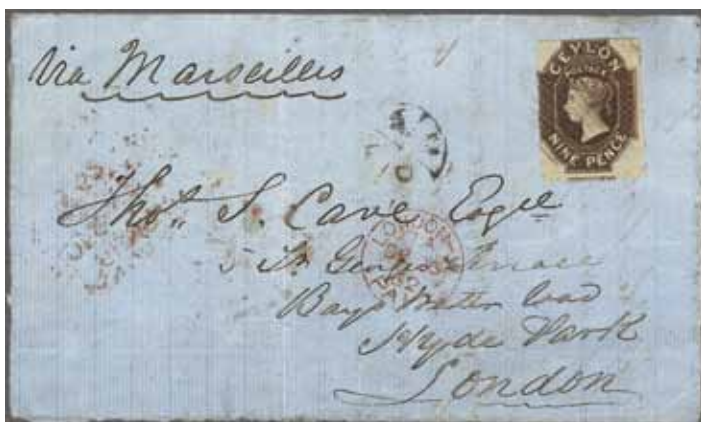 Via Marseilles
CEYLON
POSTAGE
NINE PENCE
Thos. S. Cave Esqre
5 St. Georges Terrace
Bays Water Road
Hyde Park
London
LONDON